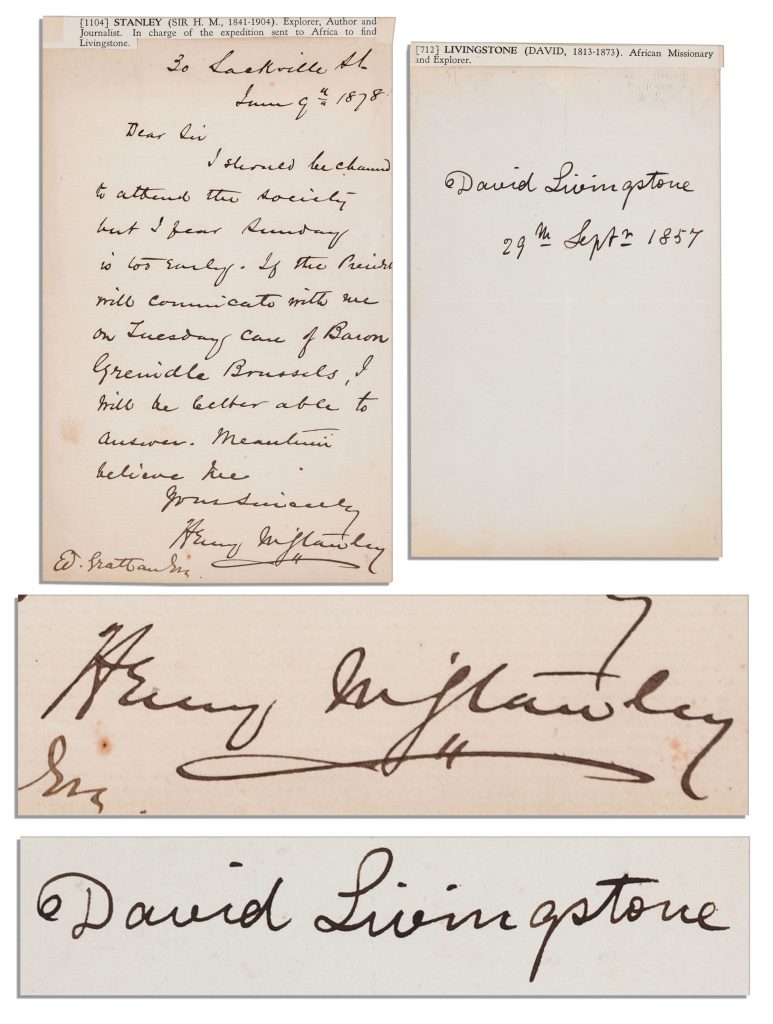 [1104] STANLEY (SIR H. M., 1841-1904). Explorer, Author and
Journalist. In charge of the expedition sent to Africa to find
Livingstone.
30 Sackville St
June 9th 1878
Dear Sir
I should be charmd
to attend the Society
but I fear Sunday
is too early. If the Presidt
will comunicate with me
on Tuesday care of Baron
Greindle Brussels, I
will be better able to
answer. Meantime
believe me
Yours sincerely
Henry M Stanley
Ed. Grattan Esq.
[712] LIVINGSTONE (DAVID, 1813-1873). African Missionary
and Explorer.
David Livingstone
29th Septr 1857
Henry M Stanley
Esq.
David Livingstone